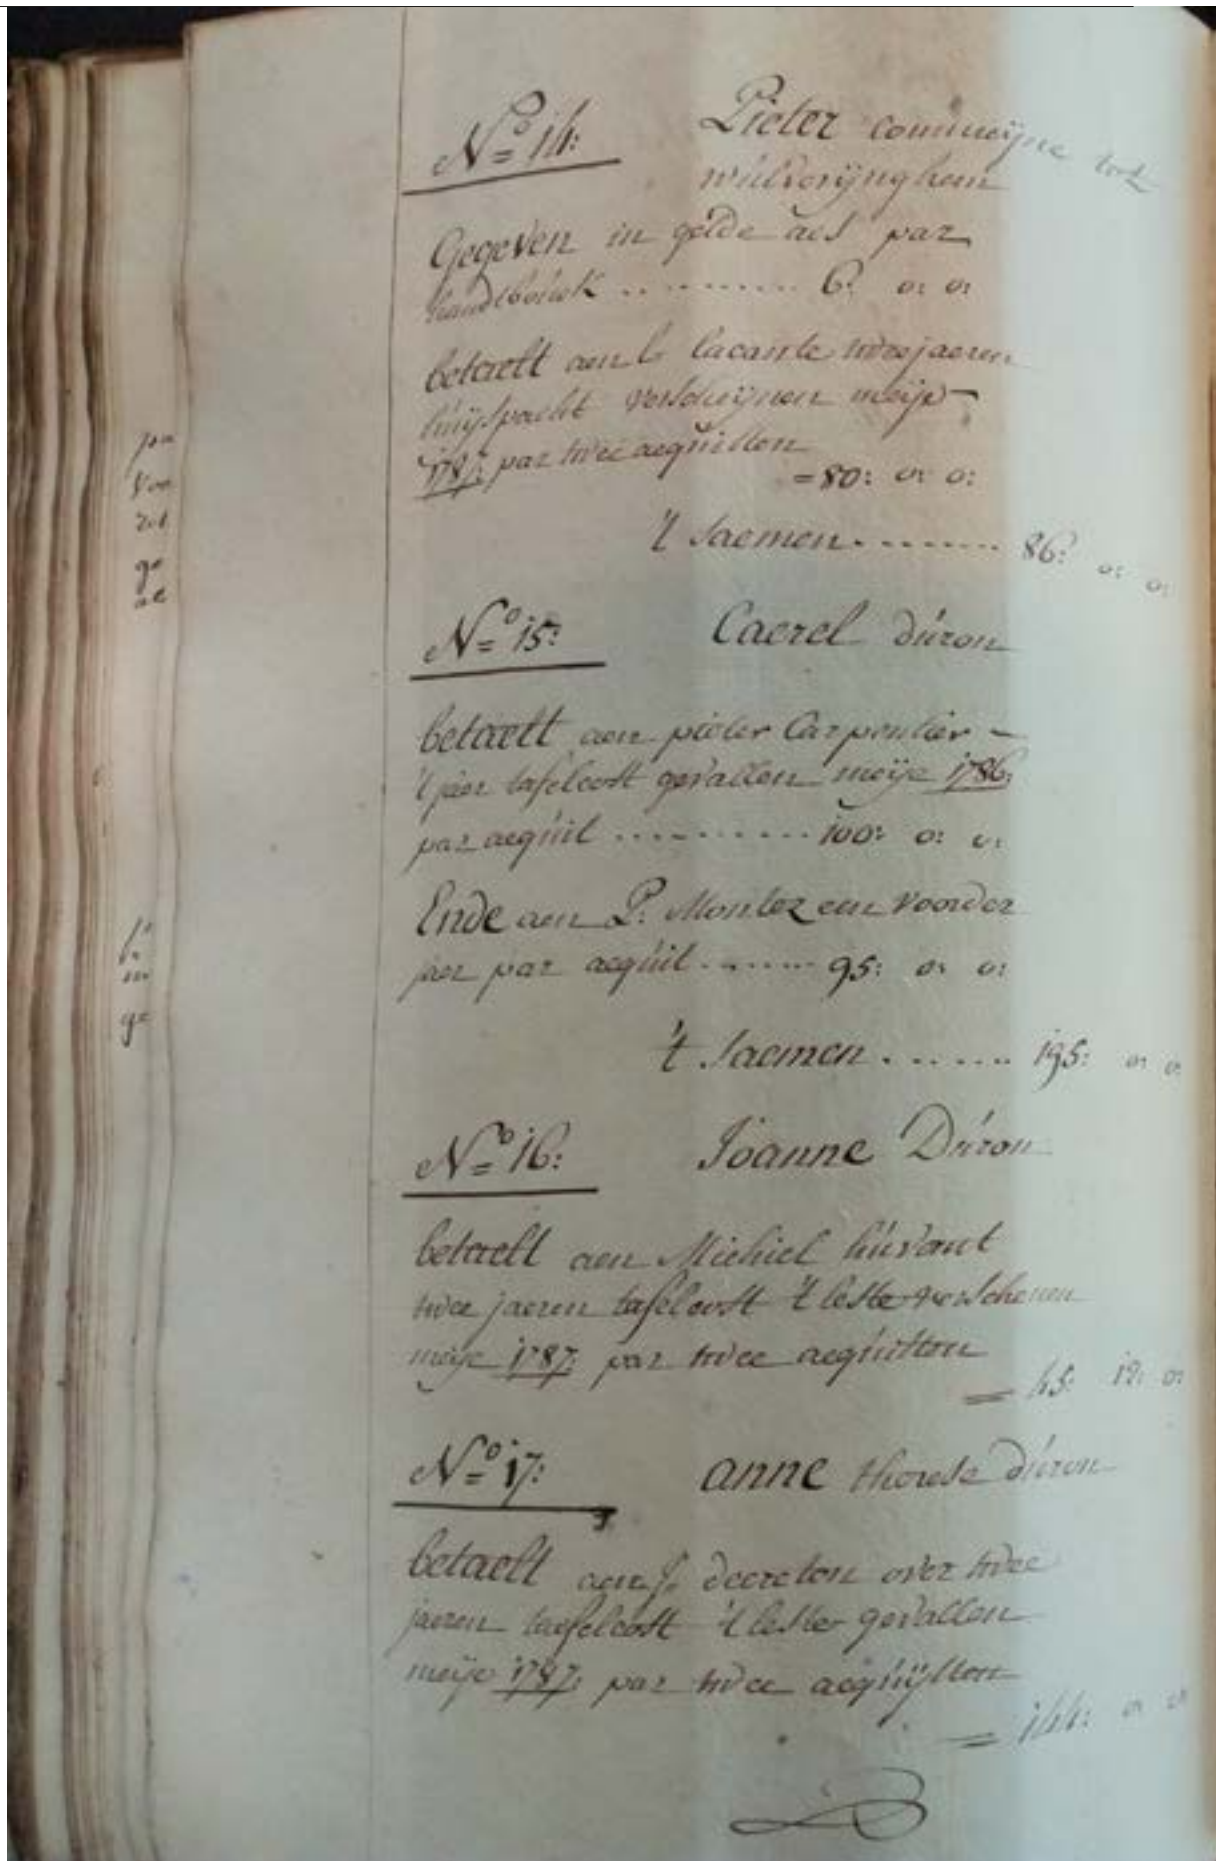 No 14: Pieter commeijne tot
wulverijnghem
Gegeven in gelde als par
handtbouck .......... 6: 0: 0:
betaelt aen b lacante twee jaeren
huijspacht verscheijnen meije
1787: par twee acquitten
= 80: 0: 0:
't saemen........ 86: 0: 0:
No 15: Caerel duron
betaelt aen pieter Carpentier
't jaer tafelcost gevallen meije 1786:
par acquit ........... 100: 0: 0:
Ende aen P: Montez een voorder
jaer par acquit ....... 95: 0: 0:
't saemen ....... 195: 0: 0:
No 16: Joanne Duron
betaelt aen Michiel huvant
twee jaeren tafelcost 't leste verschenen
meije 1787: par twee acquitten
= 45: 12: 0:
No 17: anne therese duron
betaelt aen decreton over twee
jaeren taefelcost 't leste gevallen
meije 1787: par twee acquijtten
= 144: 0: 0
pa
voo
ge
ae
ge